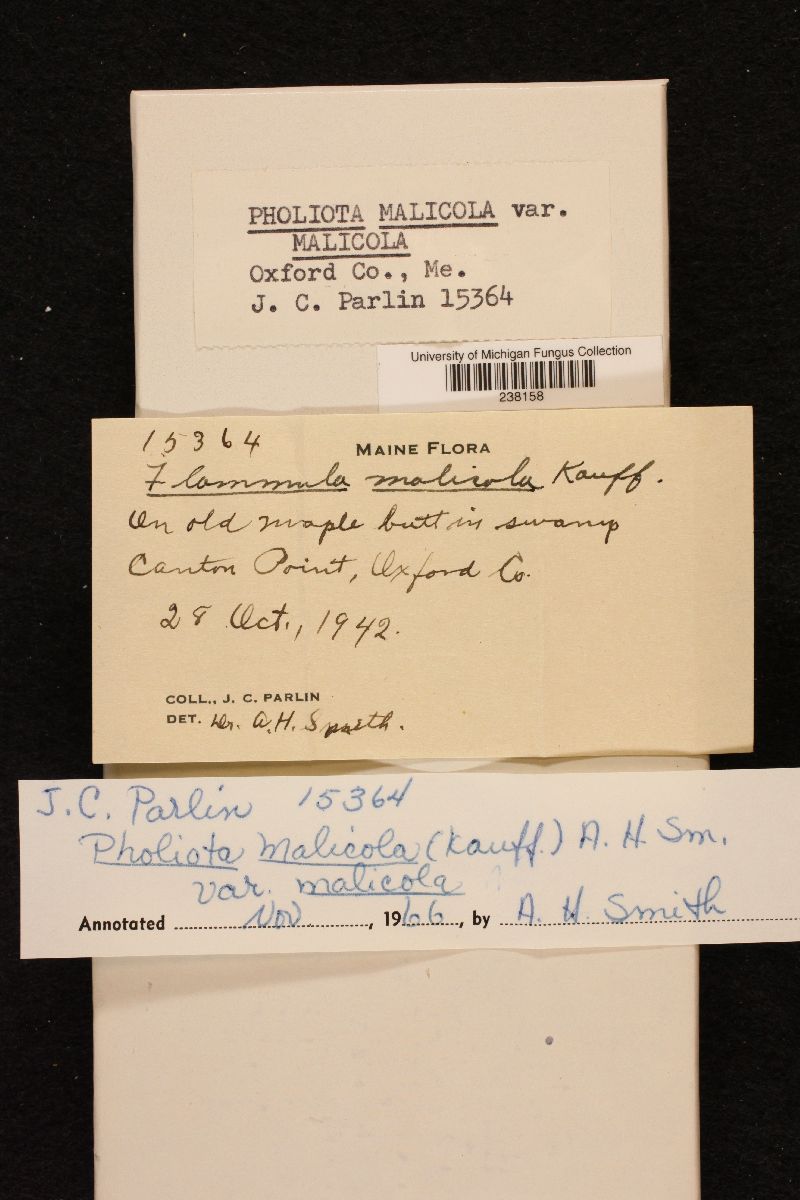 PHOLIOTA MALICOLA var.
MALICOLA
Oxford Co., Me.
J. C. Parlin 15364
University of Michigan Fungus Collection
238158
15364
MAINE FLORA
Flammula malicola Kauff.
On old maple butt in swamp
Canton Point, Oxford Co.
28 Oct., 1942.
COLL., J. C. PARLIN
DET. Dr. A. H. Smith.
J. C. Parlin 15364
Pholiota Malicola (Kauff.) A. H. Sm.
var. malicola
Annotated Nov, 1966, by A. H. Smith